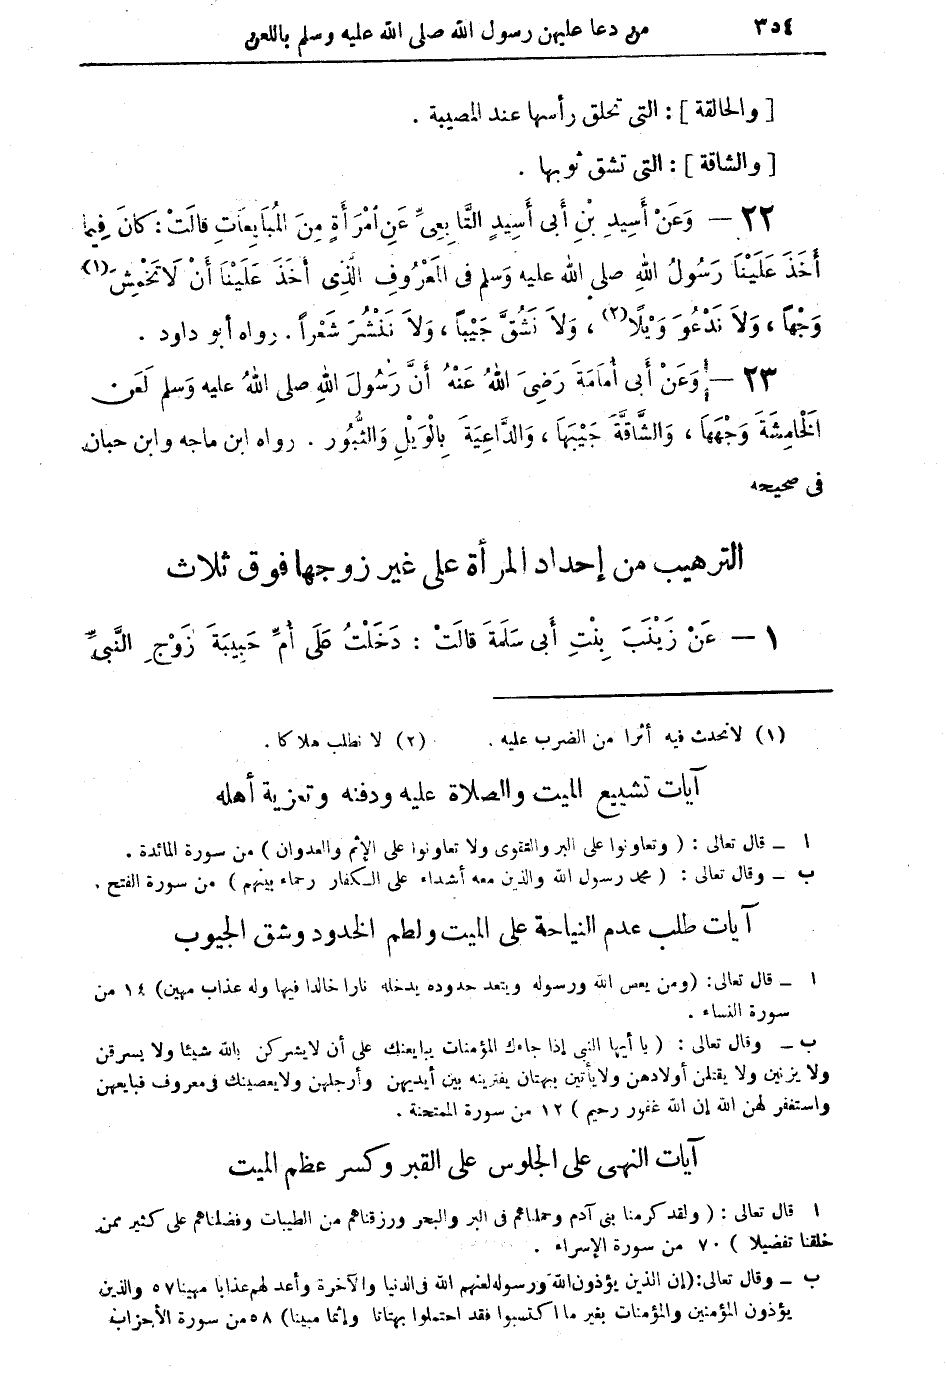 ٣٥٤ من دعا عليهن رسول الله صلى الله عليه وسلم باللعن
[ والحالقة ] : التى تحلق رأسها عند المصيبة .
[ والشاقة ] : التى تشق ثوبها .
٢٢ — وَعَنْ أَسِيدِ بْنِ أَبِى أَسِيدٍ التَّابِعِىِّ عَنِ امْرَأَةٍ مِنَ المُبَايِعَاتِ قَالَتْ : كَانَ فِيمَا
أَخَذَ عَلَيْنَا رَسُولُ اللهِ صلى الله عليه وَسلم فِى المَعْرُوفِ الَّذِى أَخَذَ عَلَيْنَا أَنْ لاَ تَخْمِشَ(١)
وَجْهاً ، وَلاَ نَدْعُوَ وَيْلاً(٢) ، وَلاَ نَشُقَّ جَيْباً ، وَلاَ نَنْشُرَ شَعْراً . رواه أبو داود .
٢٣ — وَعَنْ أَبِى أُمَامَةَ رَضِىَ اللهُ عَنْهُ أَنَّ رَسُولَ اللهِ صلى اللهُ عليه وَسلم لَعَنَ
الْخَامِشَةَ وَجْهَهَا ، وَالشَّاقَّةَ جَيْبَهَا ، وَالدَّاعِيَةَ بِالْوَيْلِ وَالثُّبُورِ . رواه ابن ماجه وابن حبان
فى صحيحه
الترهيب من إحداد المرأة على غير زوجها فوق ثلاث
١ — عَنْ زَيْنَبَ بِنْتِ أَبِى سَلَمَةَ قَالَتْ : دَخَلْتُ عَلَى أُمِّ حَبِيبَةَ زَوْجِ النَّبِىِّ
(١) لانحدث فيه أثرا من الضرب عليه . (٢) لا نطلب هلاكا .
آيات تشييع الميت والصلاة عليه ودفنه وتعزية أهله
ا — قال تعالى : ( وتعاونوا على البر والتقوى ولا تعاونوا على الإثم والعدوان ) من سورة المائدة .
ب — وقال تعالى : ( محمد رسول الله والذين معه أشداء على الكفار رحماء بينهم ) من سورة الفتح .
آيات طلب عدم النياحة على الميت ولطم الخدود وشق الجيوب
ا — قال تعالى: (ومن يعص الله ورسوله ويتعد حدوده يدخله نارا خالدا فيها وله عذاب مهين) ١٤ من
سورة النساء .
ب — وقال تعالى : ( يا أيها النبي إذا جاءك المؤمنات يبايعنك على أن لايشركن بالله شيئا ولا يسرقن
ولا يزنين ولا يقتلن أولادهن ولايأتين ببهتان يفترينه بين أيديهن وأرجلهن ولايعصينك فى معروف فبايعهن
واستغفر لهن الله إن الله غفور رحيم ) ١٢ من سورة الممتحنة .
آيات النهى على الجلوس على القبر وكسر عظم الميت
ا قال تعالى : ( ولقد كرمنا بنى آدم وحملناهم فى البر والبحر ورزقناهم من الطيبات وفضلناهم على كثير ممن
خلقنا تفضيلا ) ٧٠ من سورة الإسراء .
ب — وقال تعالى:(إن الذين يؤذون الله ورسوله لعنهم الله فى الدنيا والآخرة وأعد لهم عذابا مهينا ٥٧ والذين
يؤذون المؤمنين والمؤمنات بغير ما اكتسبوا فقد احتملوا بهتانا وإثما مبينا) ٥٨ من سورة الأحزاب